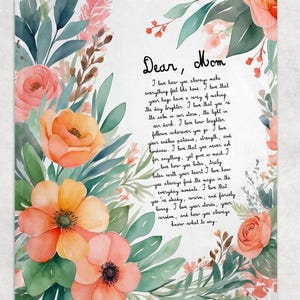 Dear, Mom
I love how you always make
everything feel like home. I love that
your hugs have a way of making
the day brighter. I love that you're
the calm in our storm, the light in
our dark. I love how laughter
follows whenever you go. I love
your endless patience, strength, and
wisdom. I love that you never ask
for anything, yet give so much. I
love how you listen, truly
listen with your heart. I love how
you always find the magic in the
everyday moments. I love that
you're steady, warm, and fiercely
loving. I love your stories, your
wisdom, and how you always
know what to say.